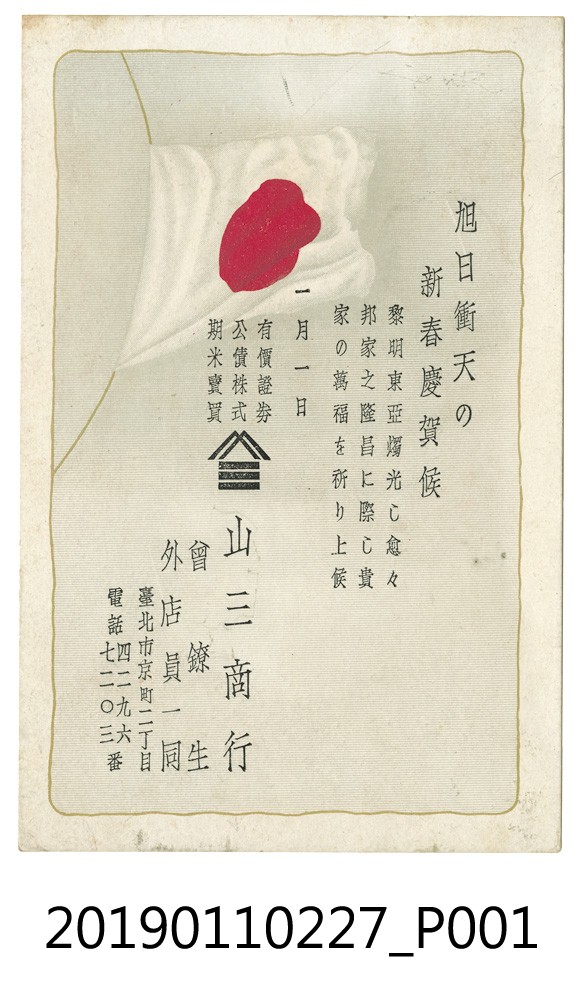 旭日衝天の
新春慶賀候
黎明東亞燭光し愈々
邦家之隆昌に際し貴
家の萬福を祈り上候
一月一日
有價證券
公債株式
期米賣買
山三商行
曾鐐生
外店員一同
臺北市京町二丁目
電話四二九六
七二〇三番
20190110227_P001